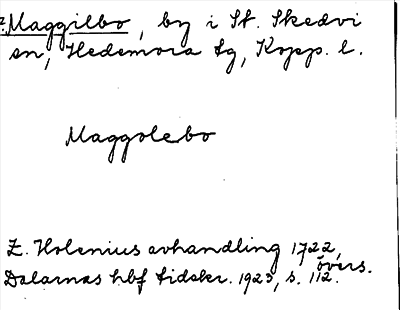 Maggilbo, by i St. Skedvi
sn, Hedemora tg, Kopp. l.
Maggolebo
Z. Holenius avhandling 1722,
övers.
Dalarnas hbf tidskr. 1923, s. 112.